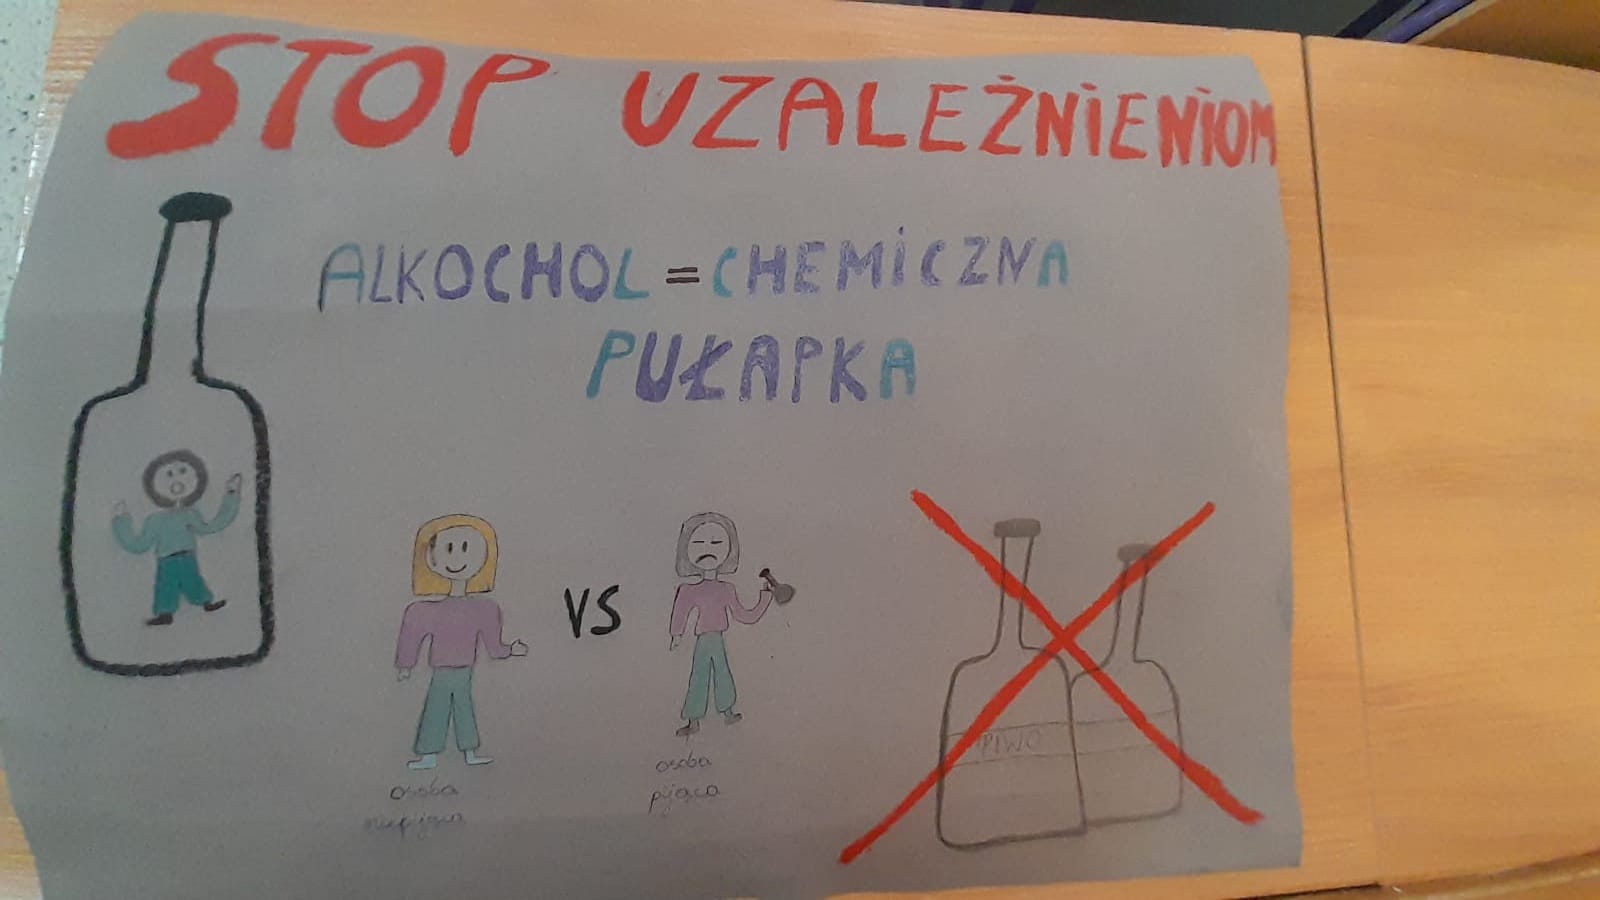 STOP UZALEŻNIENIOM
ALKOCHOL = CHEMICZNA
PUŁAPKA
VS
osoba
niepijąca
osoba
pijąca
PIWO